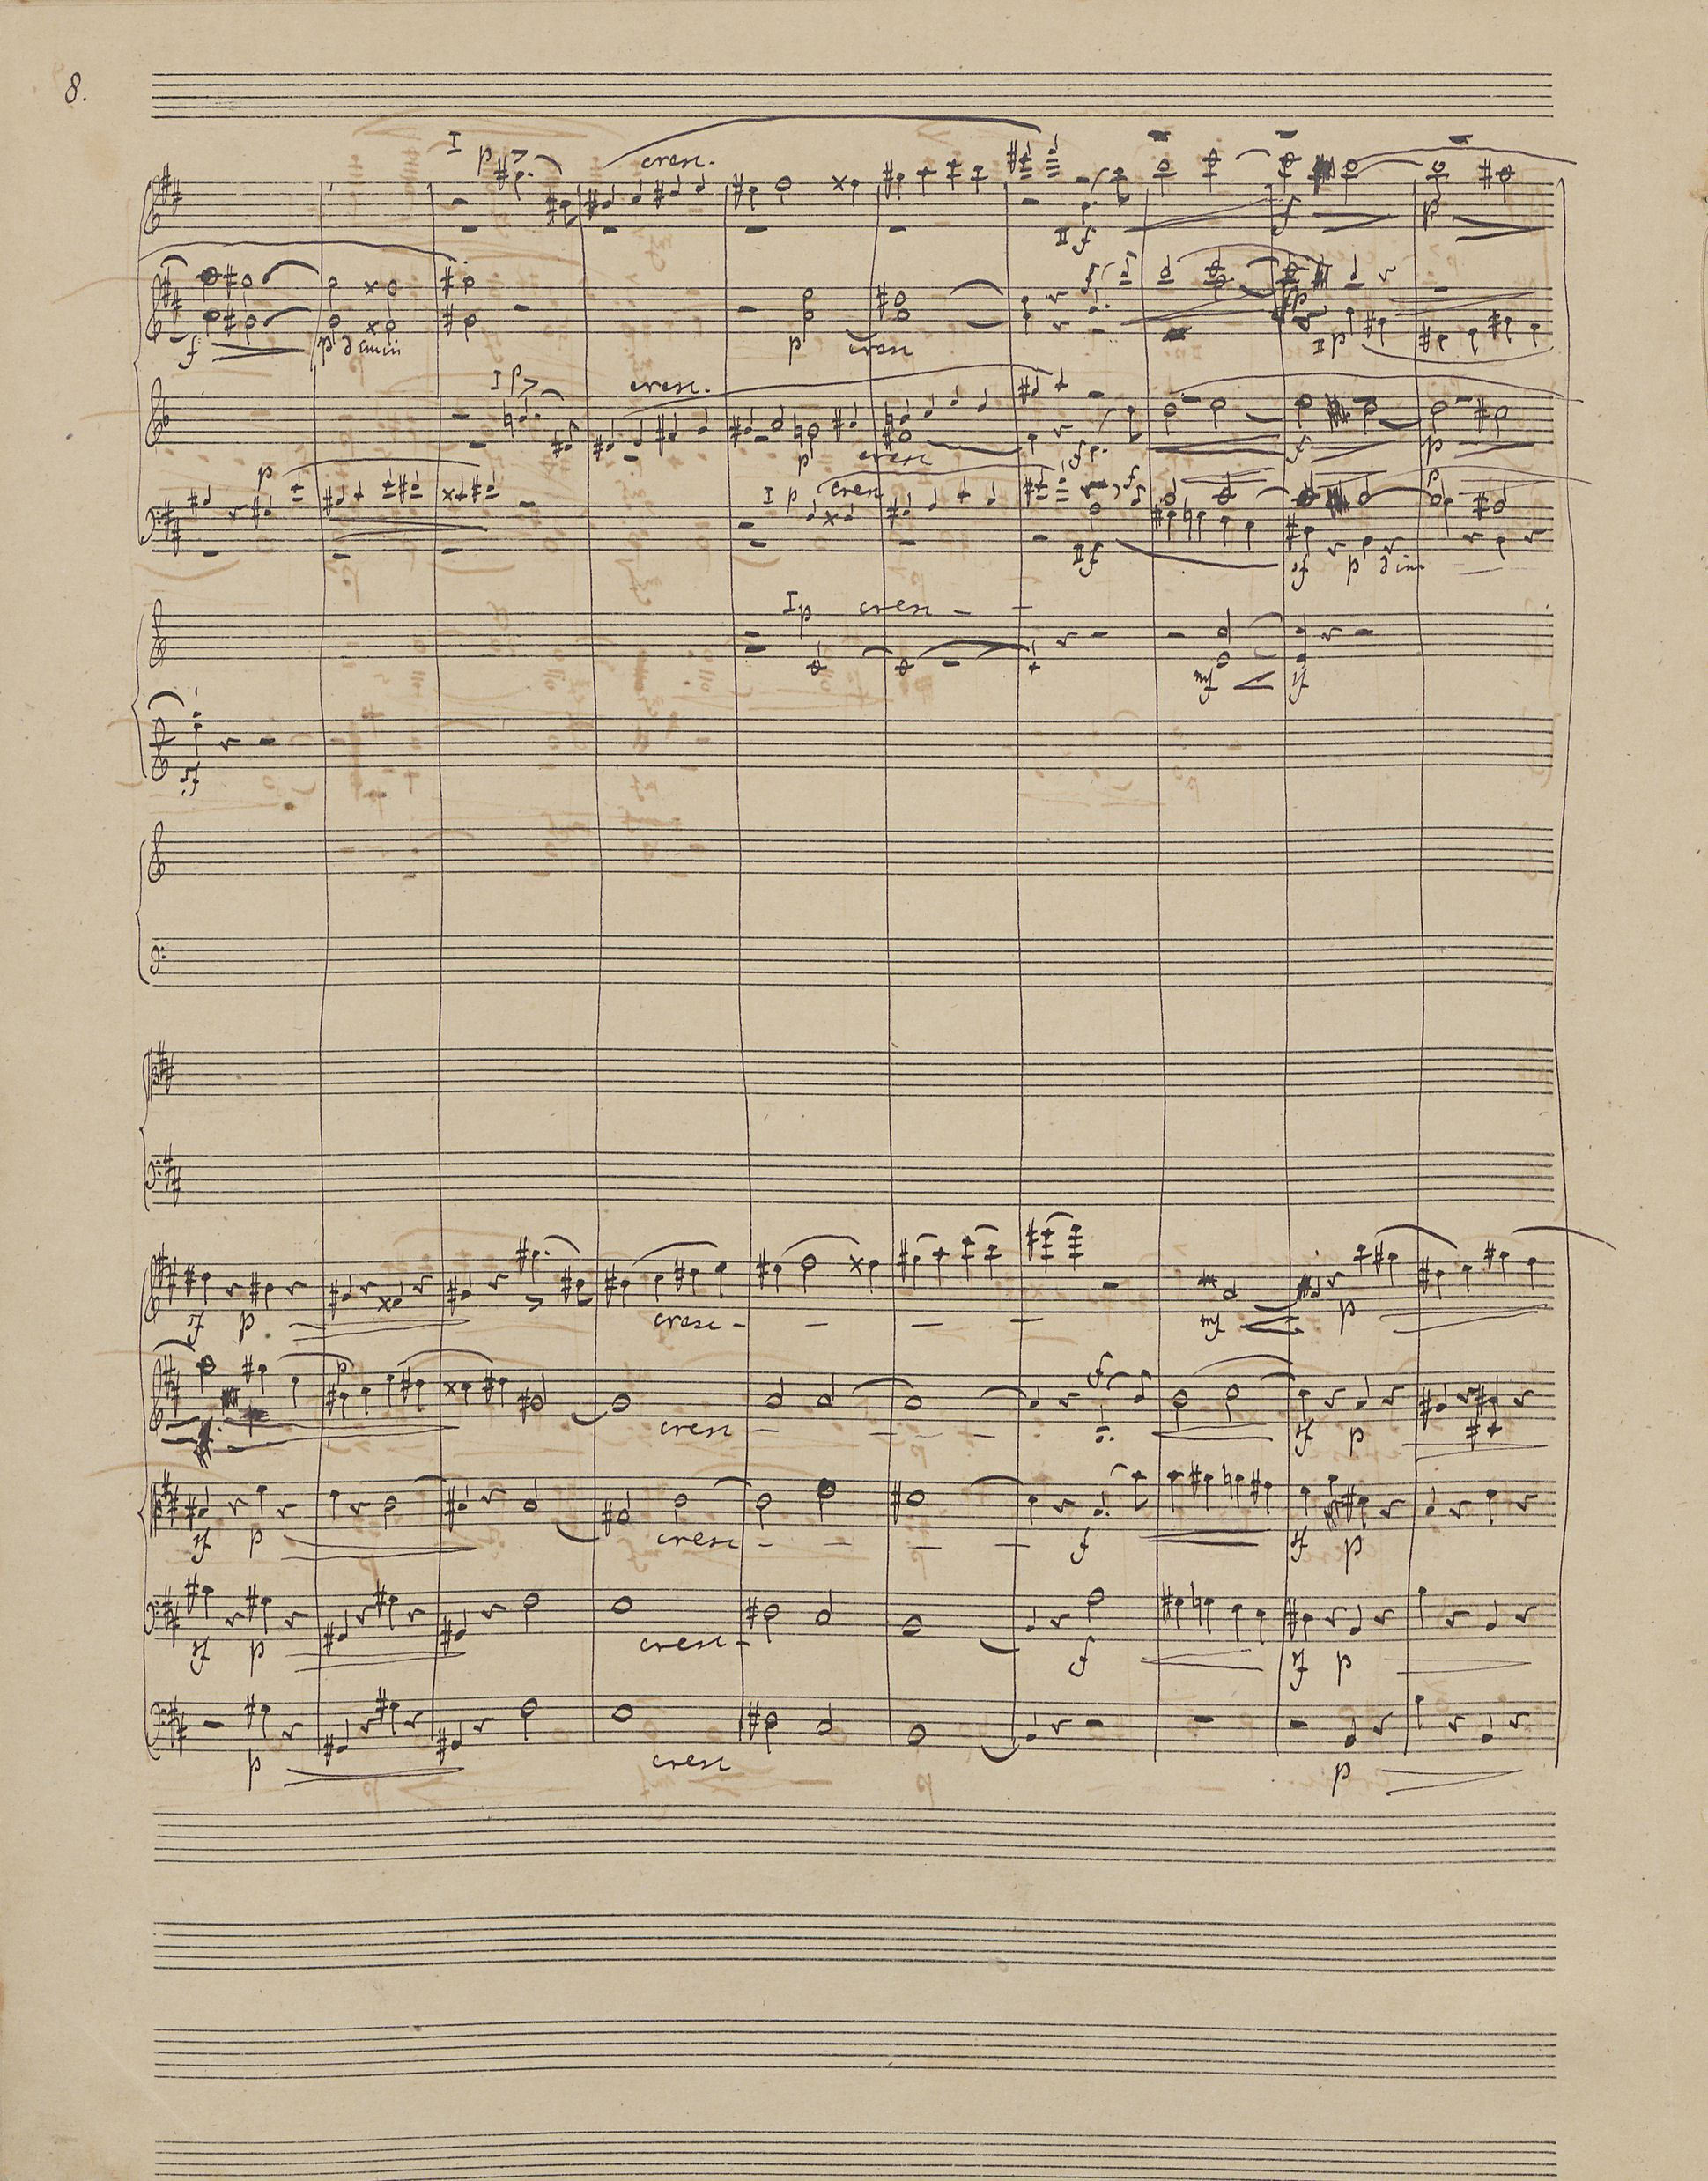 8.
I p cresc.
II f f p
f p dimin p cresc fp
II p
I p cresc.
p cresc f f p
p I p cresc f p
II f sf p dim
I p cresc
mf sf
sf
sf p cresc mf p
p cresc f sf p
sf p cresc f sf p
sf p cresc f sf p
p cresc p